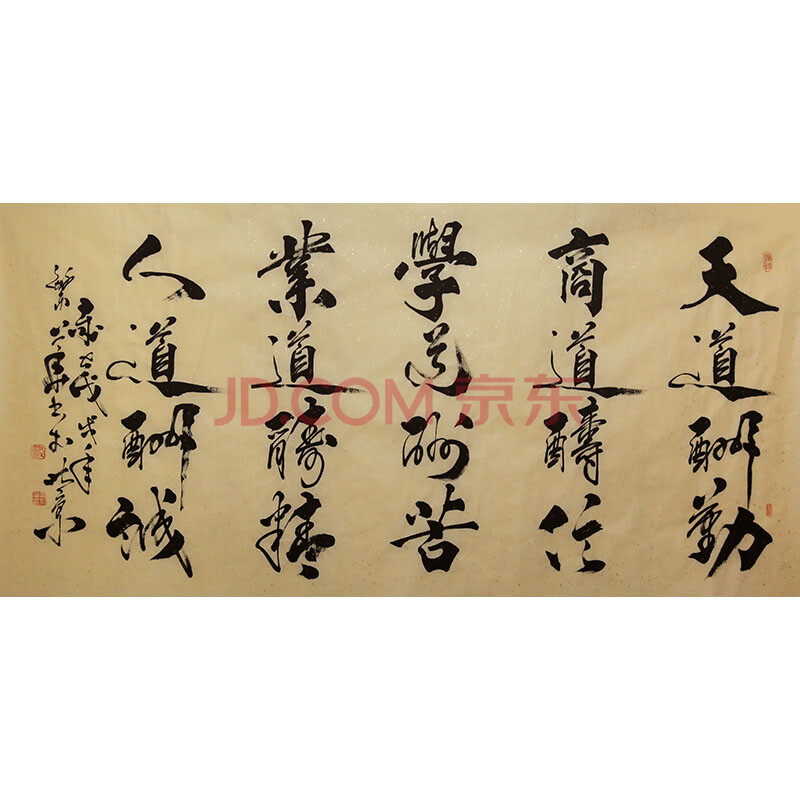 天道酬勤
商道醻信
學道酬苦
業道醻精
人道酬誠
書於北京
JD.COM 京东